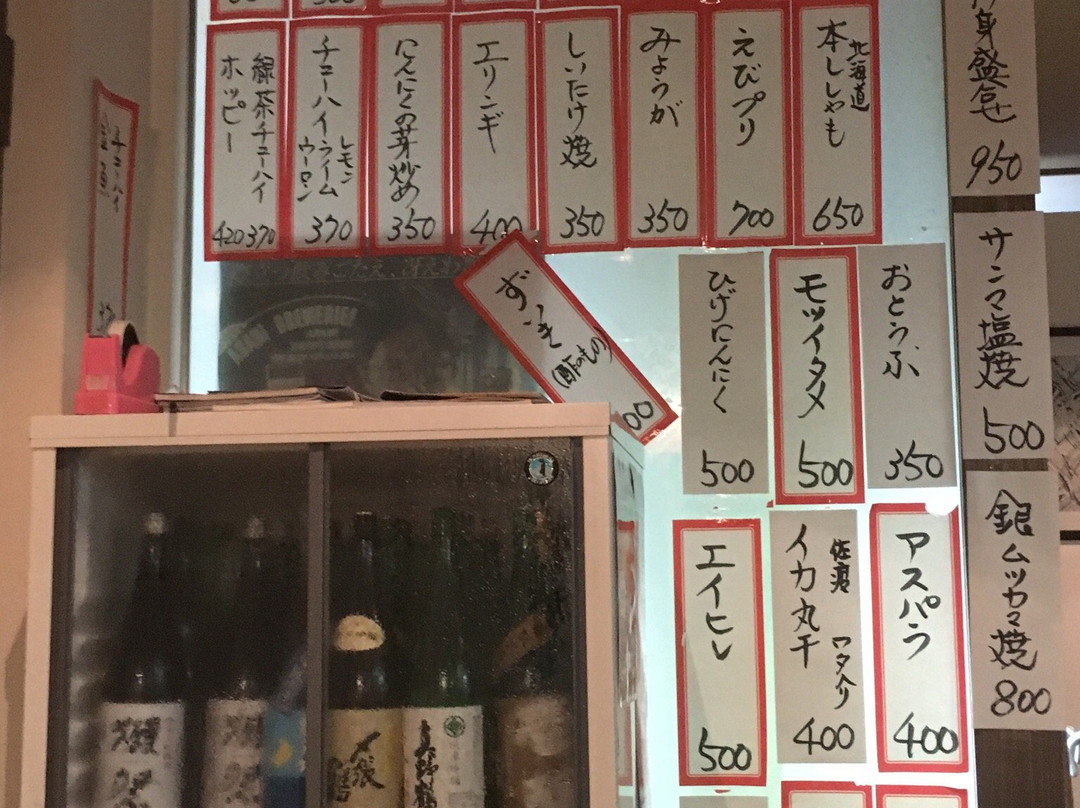 刺身盛合せ
950
北海道
本ししゃも
650
えびプリ
700
みょうが
350
しいたけ焼
350
エリンギ
400
にんにくの芽炒め
350
チューハイ
レモン
ライム
ウーロン
370
緑茶チューハイ
370
ホッピー
420
チューハイ
金魚
サンマ塩焼
500
おとうふ
350
モツイタメ
500
ひげにんにく
500
ずいき
(酢のもの)
00
銀ムツカマ焼
800
アスパラ
400
佐渡
イカ丸干
ワタ入り
400
エイヒレ
500
〆張鶴